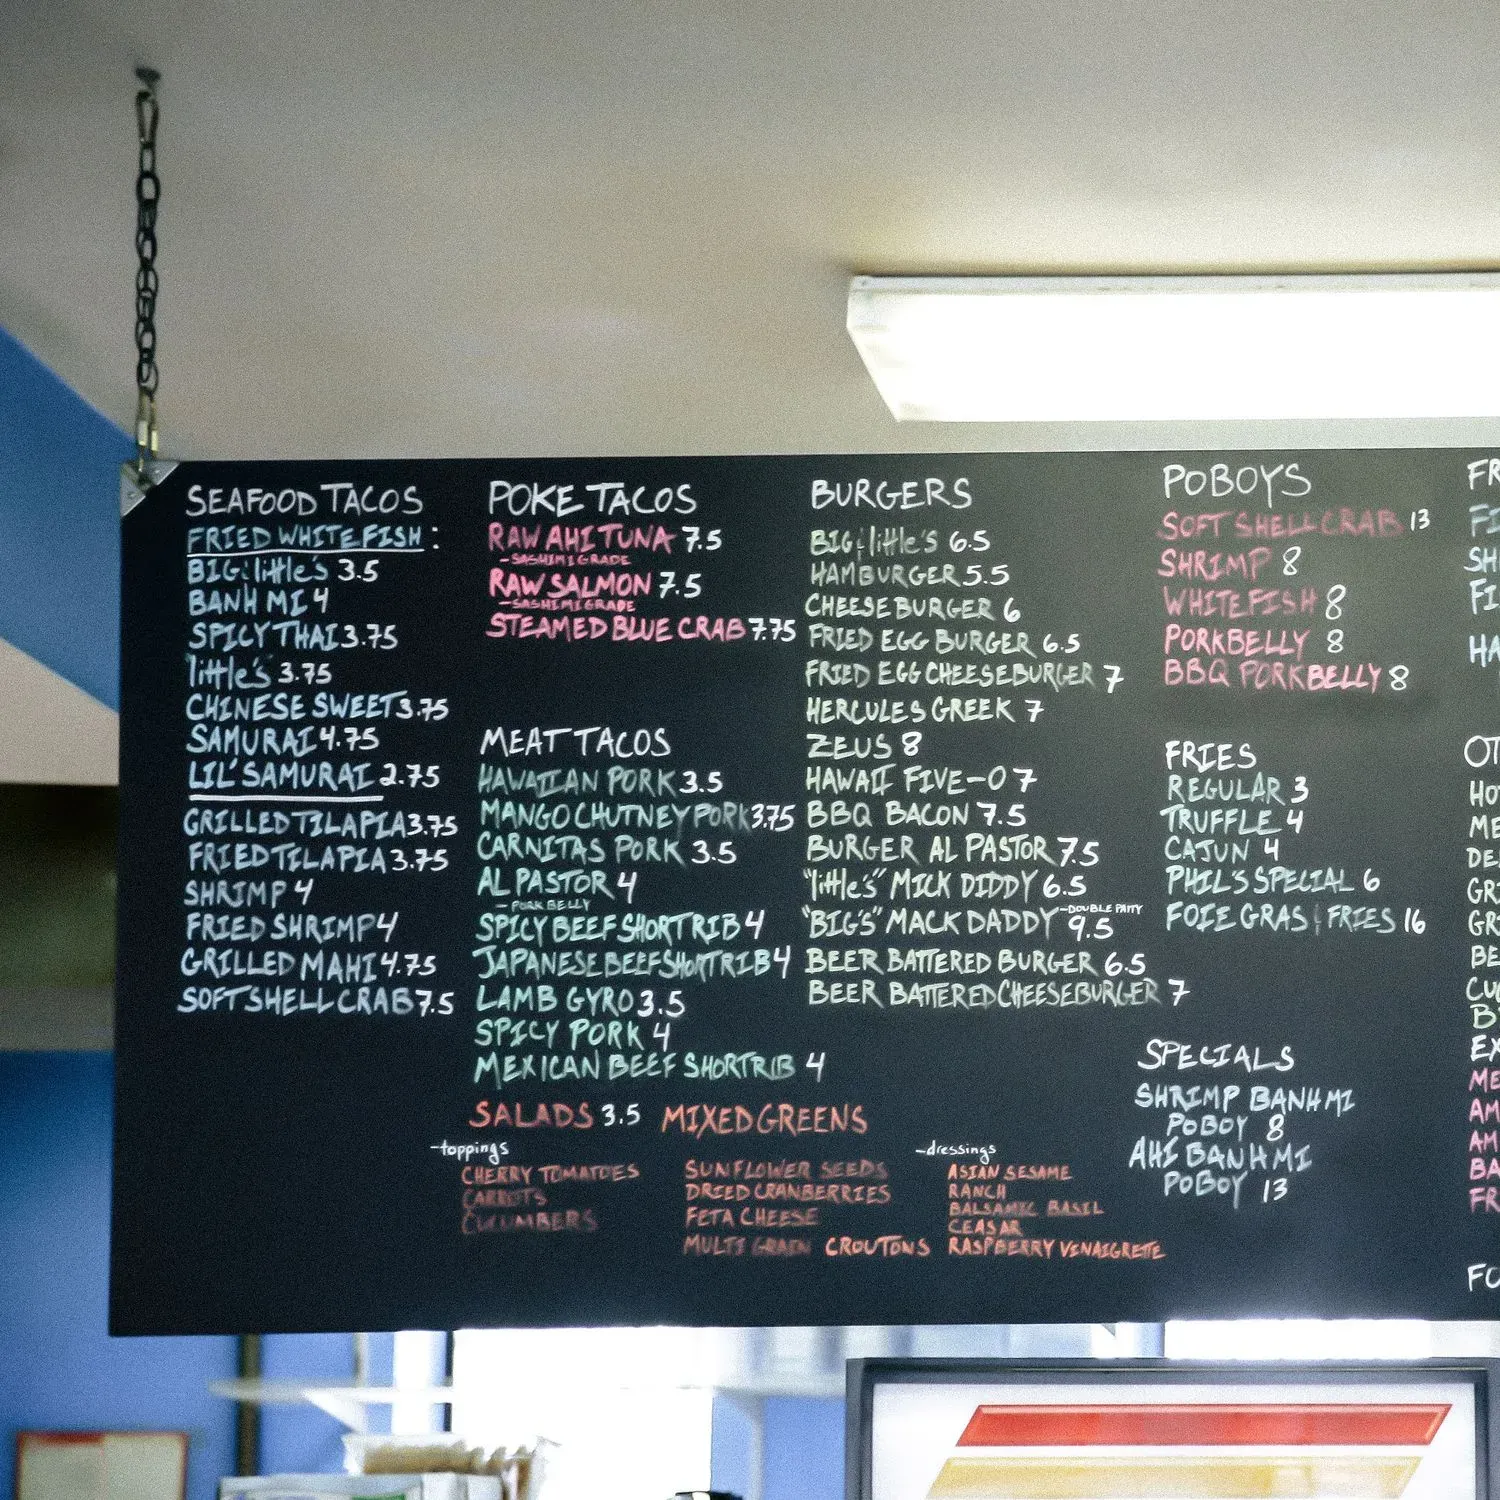 SEAFOOD TACOS
FRIED WHITEFISH :
BIG & little's 3.5
BANH MI 4
SPICY THAI 3.75
"little's" 3.75
CHINESE SWEET 3.75
SAMURAI 4.75
LIL' SAMURAI 2.75
GRILLED TILAPIA 3.75
FRIED TILAPIA 3.75
SHRIMP 4
FRIED SHRIMP 4
GRILLED MAHI 4.75
SOFT SHELL CRAB 7.5
POKE TACOS
RAW AHI TUNA 7.5
-SASHIMI GRADE
RAW SALMON 7.5
-SASHIMI GRADE
STEAMED BLUE CRAB 7.75
MEAT TACOS
HAWAIIAN PORK 3.5
MANGO CHUTNEY PORK 3.75
CARNITAS PORK 3.5
AL PASTOR 4
- PORK BELLY
SPICY BEEF SHORTRIB 4
JAPANESE BEEF SHORTRIB 4
LAMB GYRO 3.5
SPICY PORK 4
MEXICAN BEEF SHORTRIB 4
BURGERS
BIG & little's 6.5
HAMBURGER 5.5
CHEESEBURGER 6
FRIED EGG BURGER 6.5
FRIED EGG CHEESEBURGER 7
HERCULES GREEK 7
ZEUS 8
HAWAII FIVE-O 7
BBQ BACON 7.5
BURGER AL PASTOR 7.5
"little's" MICK DIDDY 6.5
"BIG'S" MACK DADDY -DOUBLE PATTY 9.5
BEER BATTERED BURGER 6.5
BEER BATTERED CHEESEBURGER 7
POBOYS
SOFT SHELL CRAB 13
SHRIMP 8
WHITEFISH 8
PORKBELLY 8
BBQ PORKBELLY 8
FRIES
REGULAR 3
TRUFFLE 4
CAJUN 4
PHIL'S SPECIAL 6
FOIE GRAS & FRIES 16
SPECIALS
SHRIMP BANH MI
POBOY 8
AHI BANH MI
POBOY 13
SALADS 3.5 MIXED GREENS
-toppings
CHERRY TOMATOES
CARROTS
CUCUMBERS
SUNFLOWER SEEDS
DRIED CRANBERRIES
FETA CHEESE
MULTI GRAIN CROUTONS
-dressings
ASIAN SESAME
RANCH
BALSAMIC BASIL
CEASAR
RASPBERRY VENAIGRETTE